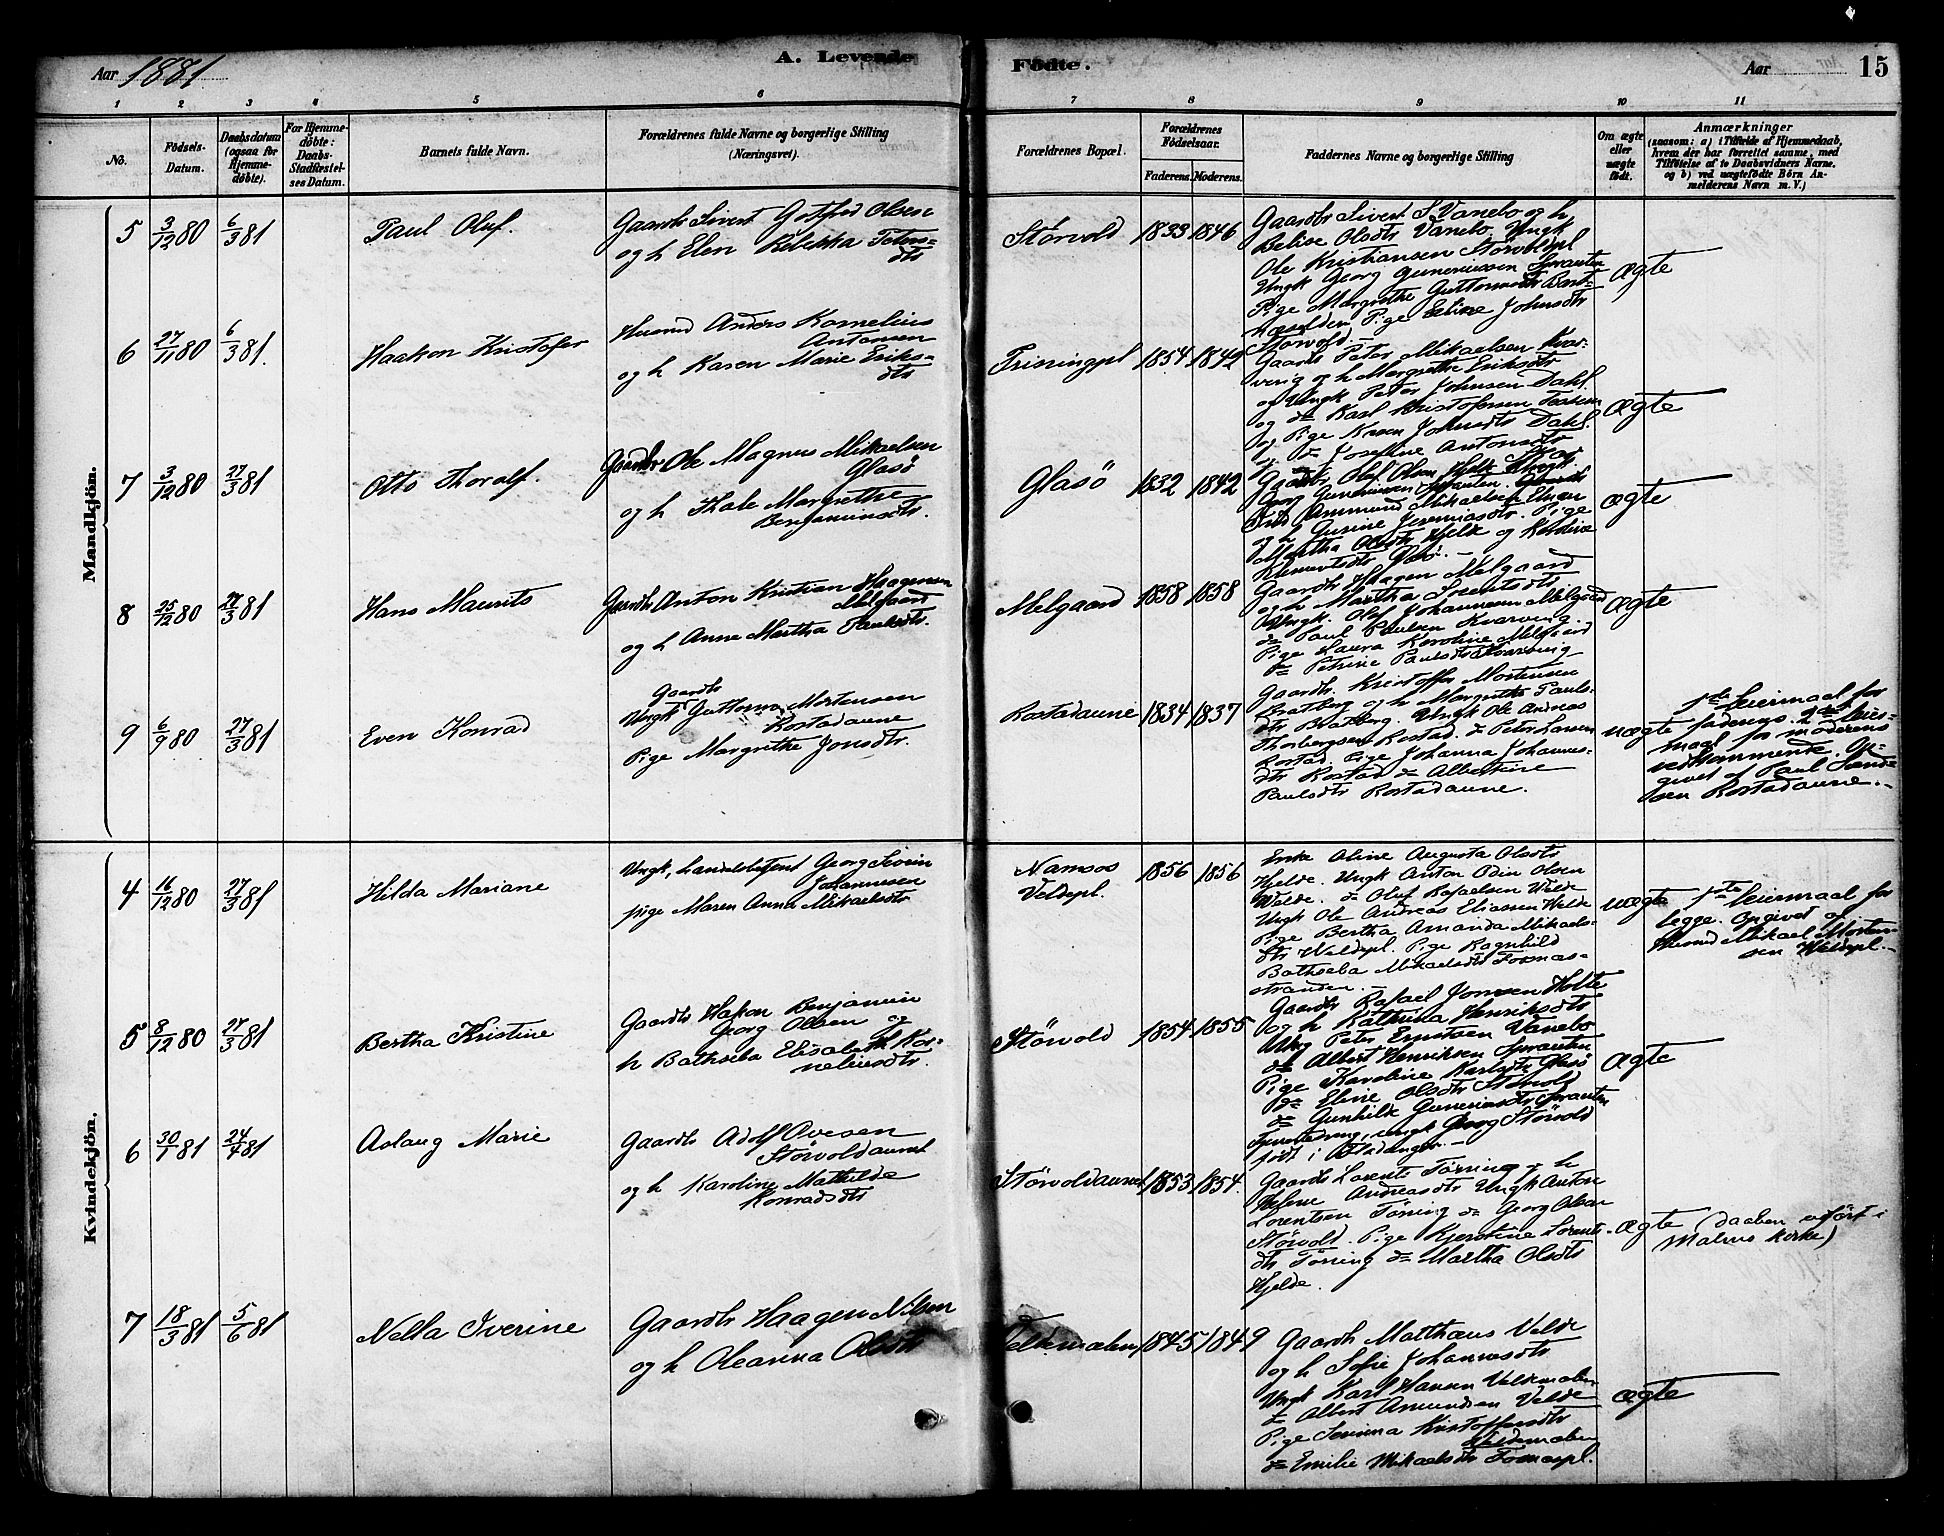 Aar 1881.
A. Levende Fødte.
Aar
15
1 2 3 4 5 6 7 8 9 10 11
No.
Fødsels-Datum.
Daabsdatum (ogsaa for Hjemme-døbte).
For Hjemme-døbte: Daabs-Stadfæstel-ses Datum.
Barnets fulde Navn.
Forældrenes fulde Navne og borgerlige Stilling (Næringsvei).
Forældrenes Bopæl.
Forældrenes Fødselsaar.
Faderens. Moderens.
Faddernes Navne og borgerlige Stilling
Om ægte eller uægte født.
Anmærkninger
(saasom: a) i Tilfælde af Hjemmedaab, hvem der har forrettet samme, med Tilføielse af to Daabsvidners Navne. og b) ved uægtefødte Børn An-melderens Navn m. V.)
Mandkjön.
5 3/12 80 6/3 81 Paul Oluf.
Gaardbr Sivert Gotfred Olsen
og h Elen Rebekka Peters-
dtr
Størvold 1833 1846
Gaardbr Sivert S. Vanebo og h
Belise Olsdtr Vanebo. Ungk
Ole Kristiansen Størvoldpl
Ungk Georg Guneriussen Spranten
Pige Margrethe Guttormsdtr Bart-
Pige Eline Johnsdtr
Størvold.
Ægte
6 27/11 80 6/3 81. Haakon Kristofer
Husmd Anders Kornelius
Antonsen
og h Karen Marie Eriks-
dtr
1854 1842
Gaardb Peter Mikaelsen Kvar-
ving og h Margrethe Eriksdtr
og Ungk Peter Johnsen Dahl
og do Karl Kristofersen
og Pige Karen Johnsdtr Dahl.
og do Josefine Antonsdtr
Ægte
7 3/12 80 27/3 81 Otto Thoralf.
Gaardbr Ole Magnus Mikaelsen
Glasö
og h Thale Margrethe
Benjaminsdtr.
Glasö 1832 1842
Gaardbr Oluf Olsen
Georg Guneriussen Spranten.
Ammund Mikaelsen
og h Gurine Jeremiasdtr. Pige
Martha Olsdtr Hjelde og
ægte
8 25/12 80 27/3 81 Hans Maurits
Gaardbr Anton Kristian Haagensen
Melgaard
og h Anne Martha Paulsdtr.
Melgaard 1858 1858
Gaardbr Haagen Melgaard
og h Martha
Ungk. Oluf Johannesen Melgaard
do Paul Paulsen Kvarving.
Pige Laura Karoline Melgaard
do Petrine Paulsdtr Kvarving
Ægte
9 6/9 80 27/3 81 Even Konrad
Gaardb
Ungk Guttorm Mortensen
Rostadaune
Pige Margrethe Jonsdtr.
Rostadaune 1834 1837
Gaardbr. Kristoffer Mortensen
Bratberg og h Margrethe Pauls-
dtr Bratberg. Ungk Ole Andreas
Thorbergsen Rostad. do Peter Larsen
Rostad. Pige Johanna Johannes-
dtr Rostad do Albertine
Paulsdtr Rostadaune.
uægte
1ste Leiermaal for
faderens. 2det leier-
maal for moderens
vedkommende. Op-
givet af Paul
sen Rostadaune.
Kvindekjön.
4 16/12 80 27/3 81 Hilda Mariane
Ungk, handelsbetjent Georg Severin
Johannesen
pige Maren Anna Mikaelsdtr
Namsos
Veldepl.
1856 1856
Enke Oline Augusta Olsdtr
Hjelde. Ungk Anton Odin Olsen
Welde. do Oluf Rafaelsen Welde
Ungk Ole Andreas Eliassen Welde
Pige Bertha Amanda Mikaels-
dtr Weldepl. Pige Ragnhild
Bathseba Mikaelsdtr Fornæs-
stranden.
uægte
1ste leiermaal for
begge. Opgivet af
Husmd Mikael Morten-
sen Weldepl.
5 8/12 80 27/3 81 Bertha Kristine
Gaardb Hakon Benjamin
Georg Olsen og
h Bathseba Elisabeth Kor-
neliusdtr.
Størvold 1854 1855
Gaardb Rafael Jonssen Holte
og h Kathrina Henriksdtr
Ungk Peter Erntsen Vanebo
do Albert Henriksen Spranten
Pige Karoline Karlsdtr Glasö
do Eline Olsdtr Størvold
do Gunhild Guneriusdtr Spranten
ungk Georg Størvold
født i
Ægte
6 30/1 81 24/4 81 Aslaug Marie
Gaardb Adolf Ovesen
Størvoldaunet
og h Karoline Mathilde
Konradsdtr
Størvoldaunet 1853 1854.
Gaardb Lorents Tørring og h
Helene Andreasdtr Ungk Anton
Lorentsen Tørring do Georg Olsen
Størvold. Pige Kjerstine Lorents-
dtr Tørring do Martha Olsdtr
Hjelde.
ægte
(daaben udført i
Malms kirke)
7 18/3 81 5/6 81 Nella Iverine
Gaardb Haagen Nilsen
og h Oleanna Olsdtr
1845 1849
Gaardb Matthæus Velde
og h Sofie Johannesdtr
Ungk Karl Hansen Veldemælen
do Albert Amundsen Velde
Pige Kristoffersdtr
Veldemælen
do Emilie Mikaelsdtr Fornæspl.
ægte